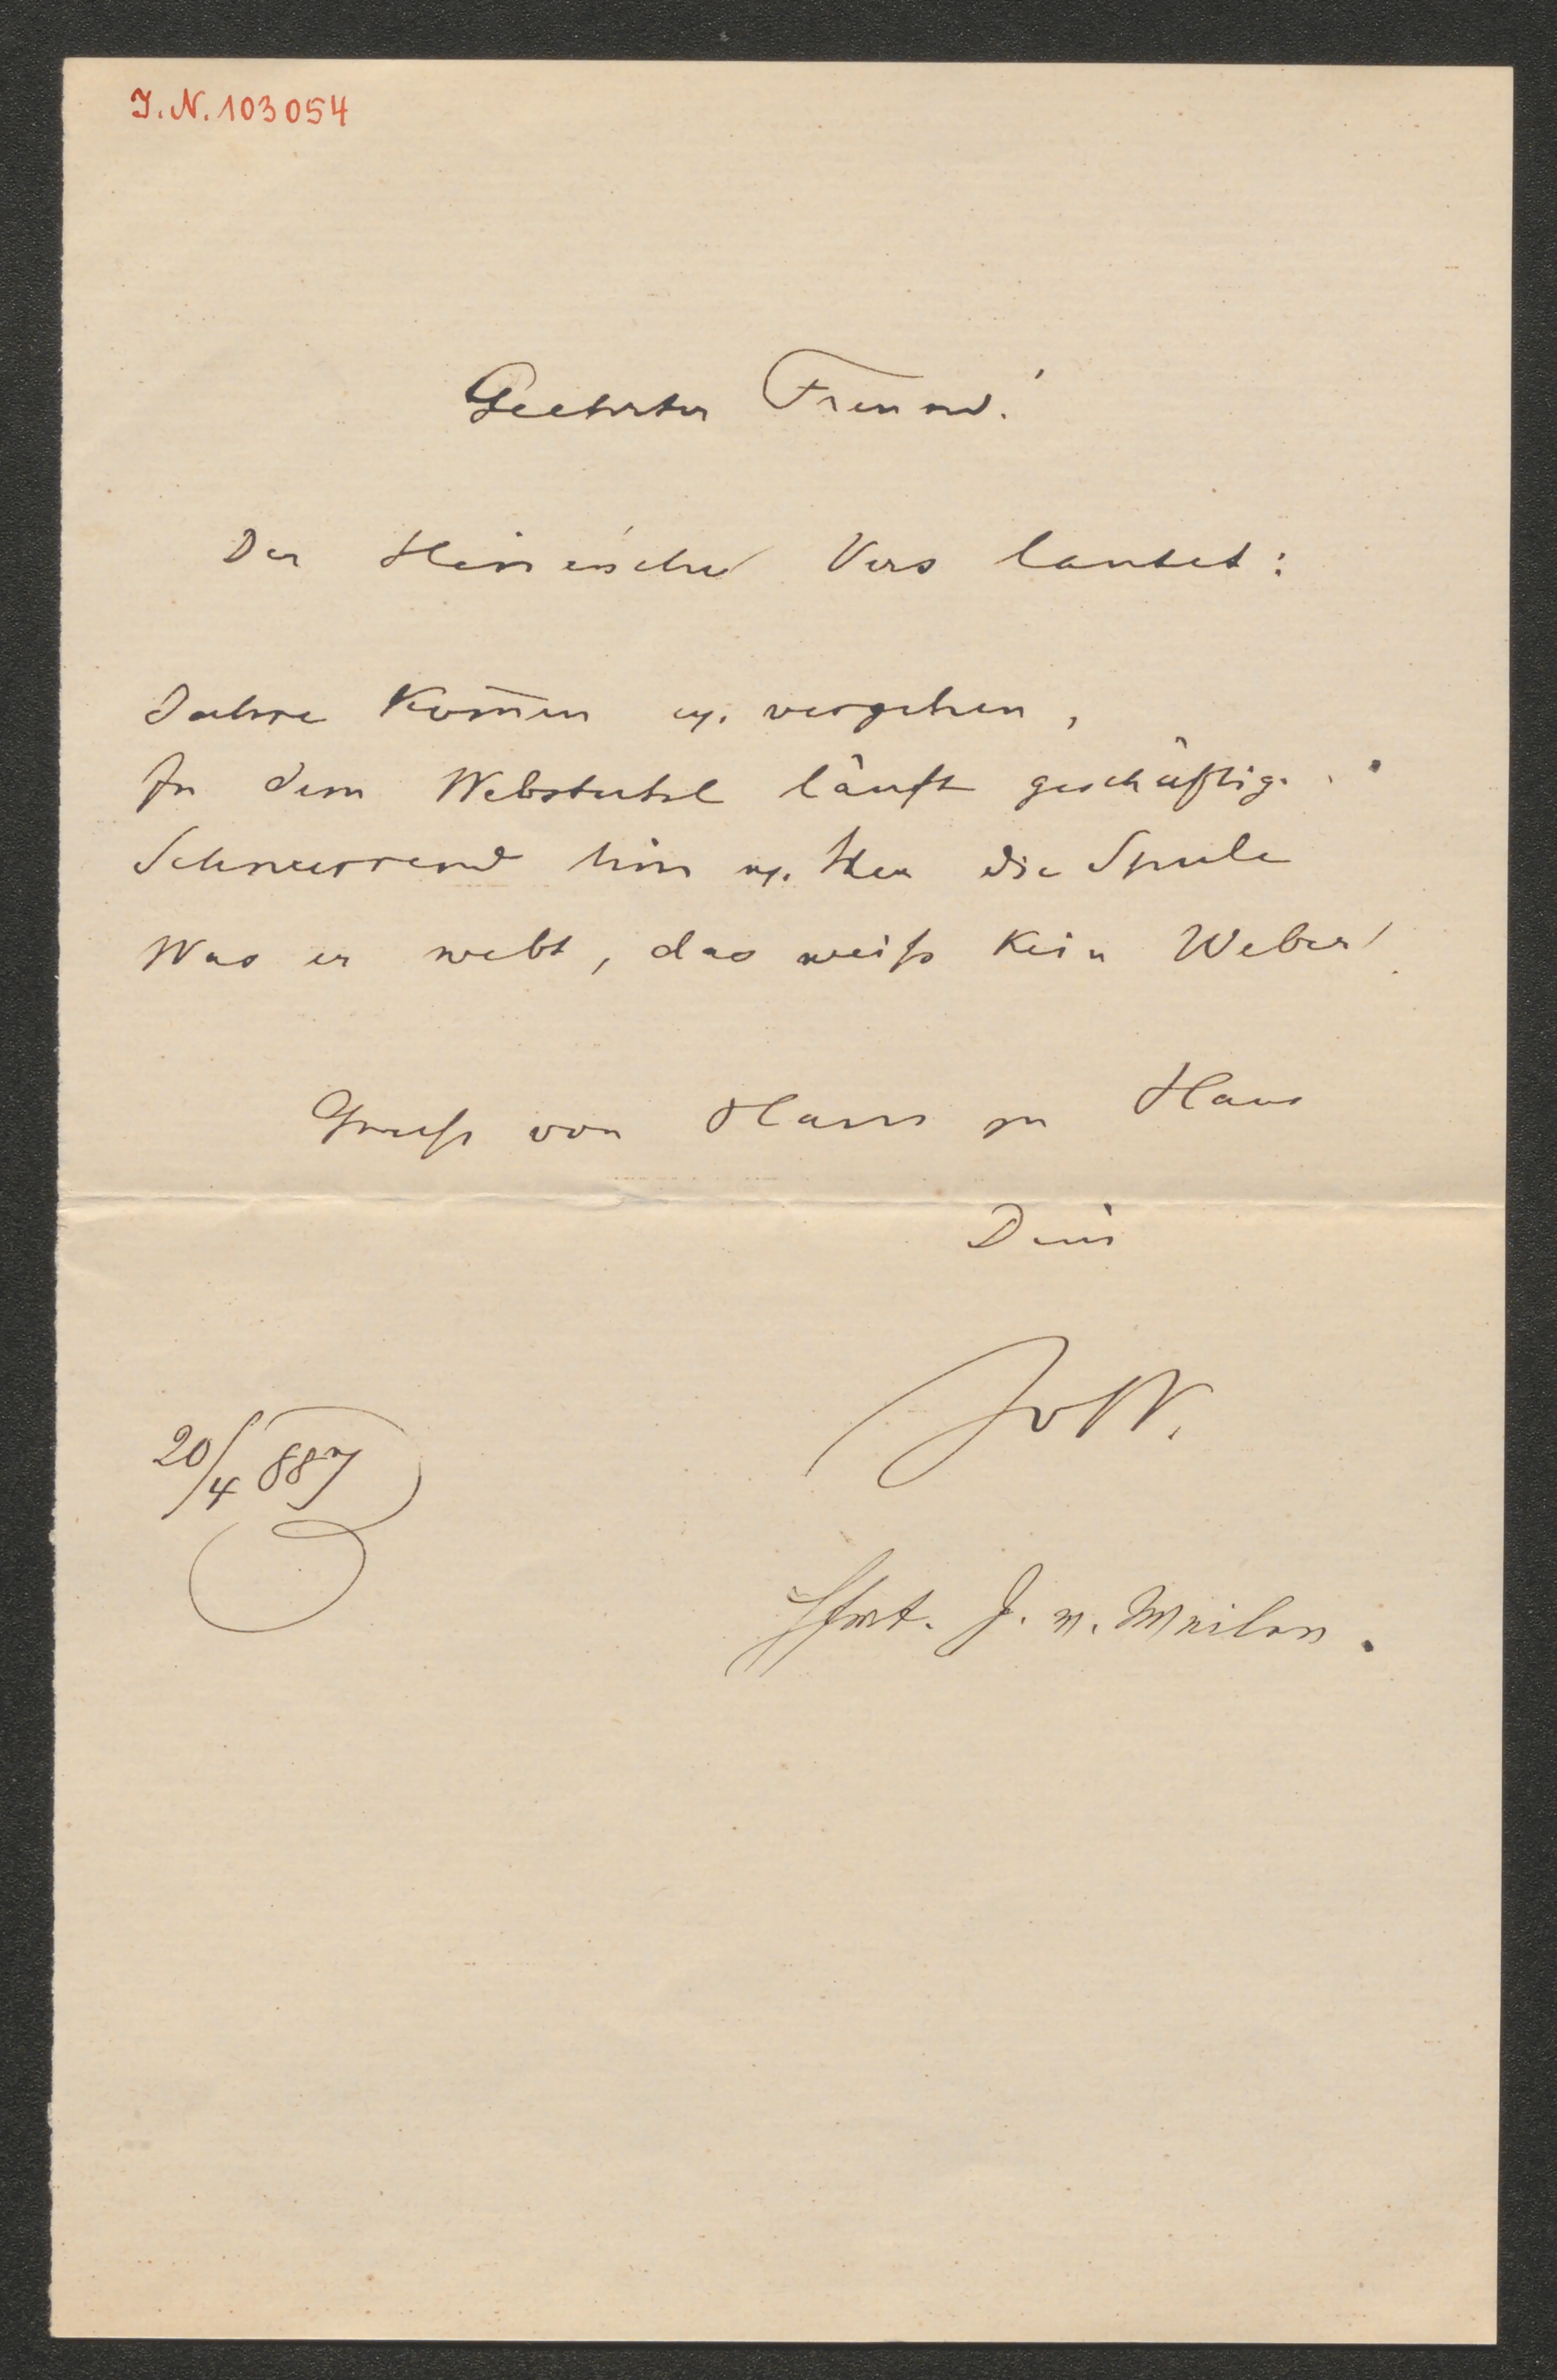 I.N. 103054
Geehrter Freund!
Der Heine'sche Vers lautet:
Jahre kom̄en u. vergehen,
In dem Webstuhl läuft geschäftig
Schnurrend hin u. her die Spule
Was er webt, das weiß kein Weber!
Gruß von Haus zu Haus
Dein
JvW.
20/4 887
J. v. Weilen.